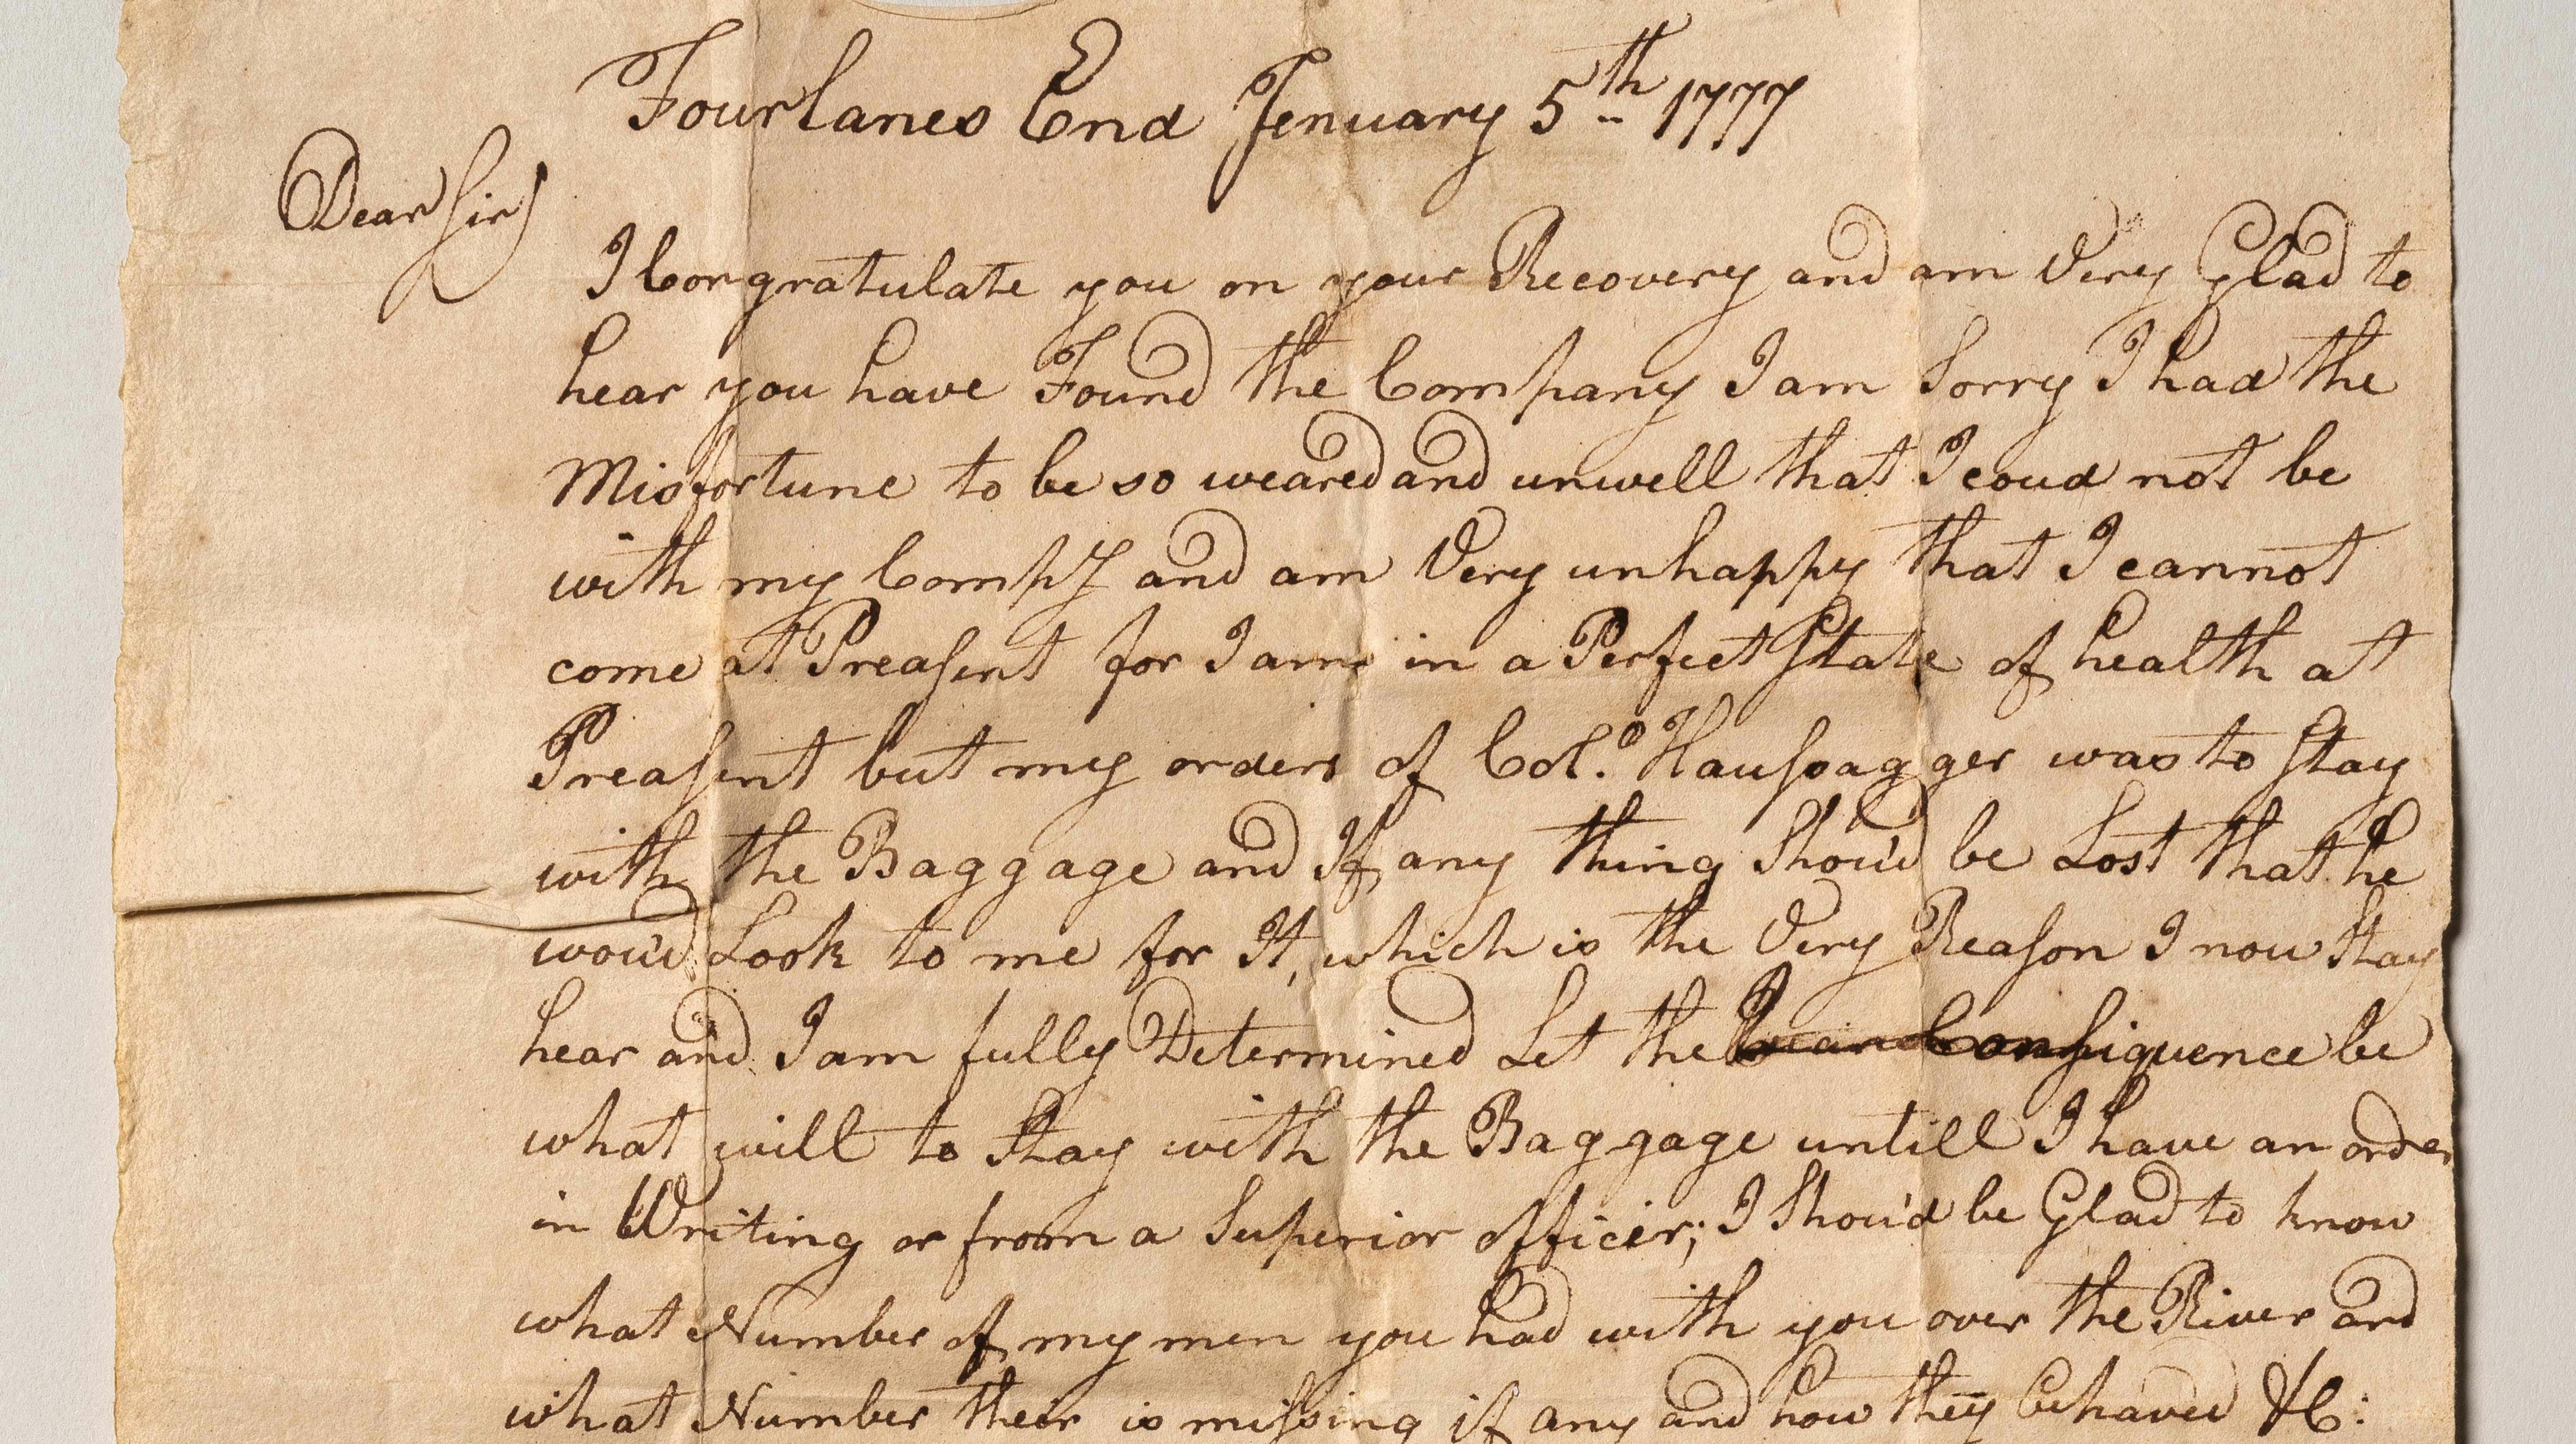 Fourlanes End Jenuary 5th 1777
Dear Sir
I Congratulate you on your Recovery and am Very Glad to
hear you have Found the Company I am Sorry I had the
Misfortune to be so weared and unwell that I coud not be
with my Compy and am Very unhappy that I cannot
come at Preasent for I am in a Perfect State of health at
Preasent but my orders of Colo. Haussagger was to Stay
with the Baggage and If any thing Shou'd be Lost that he
wou'd Look to me for It, which is the Very Reason I now Stay
hear and I am fully Determined Let the Consiquence be
what will to Stay with the Baggage untill I have an order
in Writing or from a Superior officer; I Shou'd be Glad to know
what Number of my men you had with you over the River and
what Number their is missing if any and how they behaved &C: